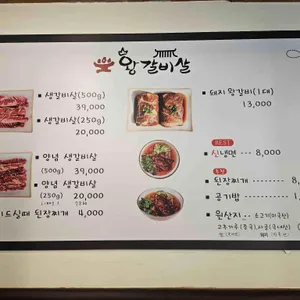 왕갈비살
• 생갈비살(500g)
39,000
• 생갈비살(250g)
20,000
• 양념 생갈비살
(500g) 39,000
• 양념 생갈비살
(250g) 20,000
드실때 된장찌개 4,000
• 돼지 왕갈비(1대)
13,000
BEST
• 신냉면 --- 8,000
• 된장찌개 8
• 공기밥 1
• 원산지